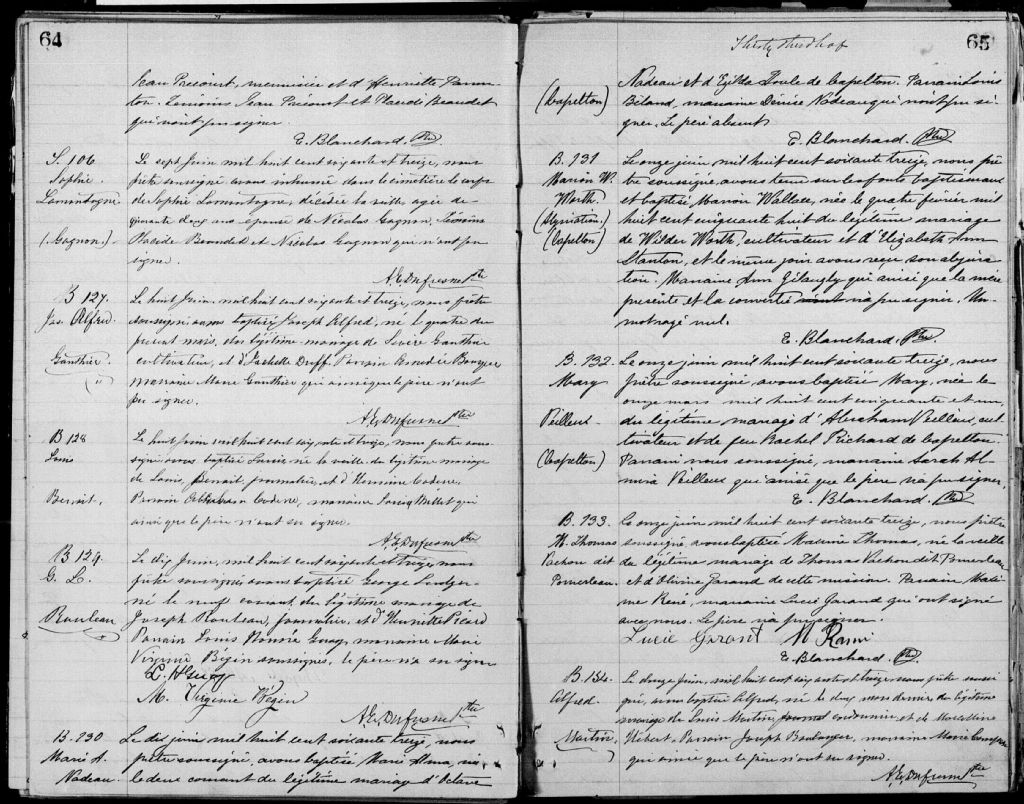 64
Jean Précourt, menuisier et d'Henriette
Témoins Jean Précourt et Placide Beaudet
qui n'ont pu signer.
E. Blanchard. Ptre
S. 106
Sophie
Lamontagne
(Gagnon.)
Le sept Juin mil huit cent soixante et treize, nous
prêtre soussigné avons inhumé dans le cimetière le corps
de Sophie Lamontagne, décédée la veille agée de
cinquante deux ans épouse de Nicolas Gagnon, Témoins
Placide Beaudet et Nicolas Gagnon qui n'ont pu
signer.
A. E. Dufresne Ptre
B 127.
Jos. Alfred.
Gauthier.
Le huit Juin, mil huit cent soixante et treize, nous prêtre
soussigné avons baptisé Joseph Alfred, né le quatre du
présent mois, du légitime mariage de Sévère Gauthier
cultivateur, et d' Duff. Parrain
marraine Marie Gauthier qui ainsi que le père n'ont
pu signer.
A. E. Dufresne Ptre
B 128
Louis
Benoit.
Le huit Juin mil huit cent soixante et treize, nous prêtre sous-
signé avons baptisé Louis, né la veille du légitime mariage
de Louis Benoit, journalier, et d'Hermine Coderre.
Parrain Coderre, marraine Louise Millet qui
ainsi que le père n'ont su signer.
A. E. Dufresne Ptre
B 129.
G. L.
Rouleau
Le dix Juin, mil huit cent soixante et treize, nous
prêtre soussigné avons baptisé George
né le neuf courant, du légitime mariage de
Joseph Rouleau, journalier, et d'Henriette Picard
Parrain Louis Honoré Guay, marraine Marie
Virginie Bégin soussignés, le père n'a su signer
L. H. Guay
M. Virginie Bégin
A. E. Dufresne Ptre
B. 130
Marie A.
Nadeau
Le dix juin mil huit cent soixante treize, nous
prêtre soussigné, avons baptisé Marie Alma, née
le deux courant du légitime mariage d'Octave
65
(Capelton)
Nadeau et d'Exilda Houle de Capelton. Parrain Louis
Béland, marraine Dénise Nadeau qui n'ont pu si-
gner. Le père absent.
E. Blanchard. Ptre
B. 131
Marion W.
Worth.
(Abjuration)
(Capelton)
Le onze juin mil huit cent soixante treize, nous prê-
tre soussigné, avons tenu sur les fonts baptismaux
et baptisé Marion Wallace, née le quatre février mil
huit cent cinquante huit du légitime mariage
de Wilder Worth, cultivateur et d'Elizabeth Ann
Stanton, et le même jour avons reçu son abjura-
tion. Marraine Ann qui ainsi que la mère
présente et la convertie n'a pu signer. Un
mot rayé nul.
E. Blanchard. Ptre
B. 132.
Mary
Veilleux
(Capelton)
Le onze juin mil huit cent soixante treize, nous
prêtre soussigné, avons baptisé Mary, née le
onze mars mil huit cent cinquante et un,
du légitime mariage d'Abraham Veilleux, cul-
tivateur et de feu Rachel Richard de Capelton.
Parrain nous soussigné, marraine Sarah Al-
mira Veilleux qui ainsi que le père n'a pu signer.
E. Blanchard. Ptre
B. 133.
M. Thomas
Vachon dit
Pomerleau.
Le onze juin mil huit cent soixante treize, nous prêtre
soussigné avons baptisé Thomas, né la veille
du légitime mariage de Thomas Vachon dit Pomerleau
et d'Olivine Garand de cette mission. Parrain
René, marraine Lucie Garand qui ont signé
avec nous. Le père n'a pu signer.
Lucie Garant
E. Blanchard. Ptre
B. 134.
Alfred.
Martin
Le douze Juin, mil huit cent soixante et treize, nous prêtre soussi-
gné, avons baptisé Alfred, né le du légitime
mariage de Louis Martin, cordonnier, et de Marcelline
Hébert. Parrain Joseph Boulanger, marraine Marie
qui ainsi que le père n'ont su signer.
A. E. Dufresne Ptre